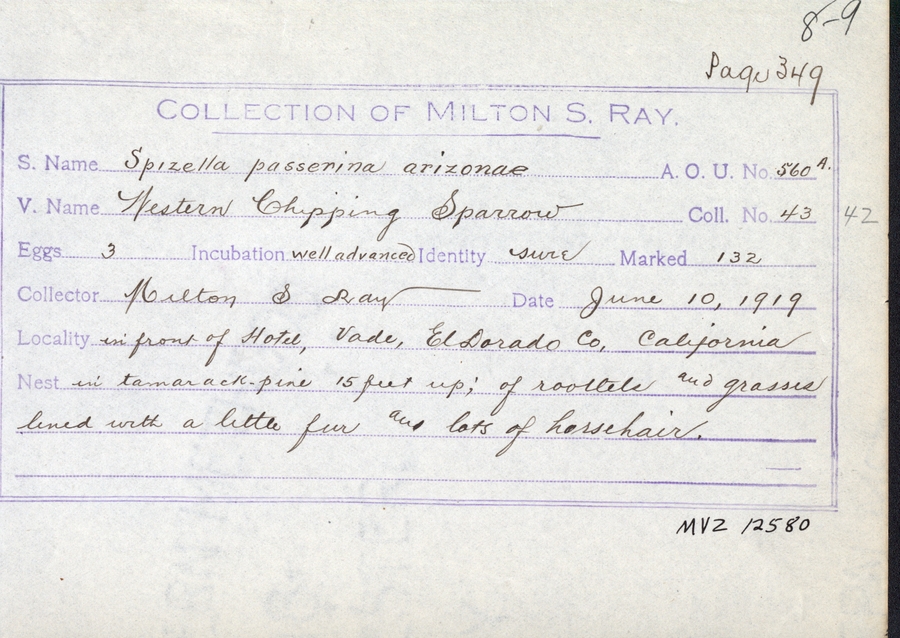 8-9
Page 349
COLLECTION OF MILTON S. RAY.
S. Name Spizella passerina arizonae A. O. U. No. 560A.
V. Name Western Chipping Sparrow Coll. No. 43 42
Eggs 3 Incubation well advanced Identity sure Marked 132
Collector Milton S Ray Date June 10, 1919
Locality in front of Hotel, Vade, El Dorado Co, California
Nest in tamarack-pine 15 feet up; of rootlets and grasses
lined with a little fur and lots of horsehair.
MVZ 12580